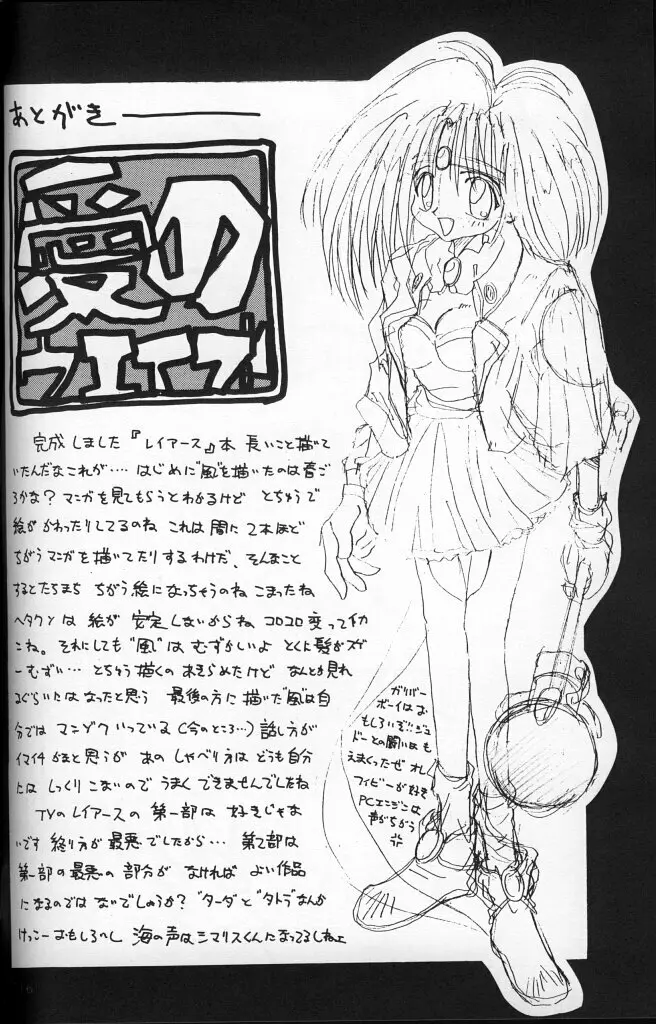 あとがき
愛の
完成しました『レイアース』本 長いこと描いて
いたんだなこれが‥‥ はじめに"風"を描いたのは春ご
ろかな? マンガを見てもらうとわかるけど とちゅうで
絵が かわったりしてるのね これは間に2本ほど
ちがうマンガを描いてたりするわけだ、そんなこと
するとたちまち ちがう絵になっちゃうのね こまったね
ヘタクソは 絵が 安定しないからね コロコロ変って
こね。それにしても"風"は むずかしいよ とくに髪が スゲ
ーむずい‥‥ とちゅう描くの あきらめたけど なんとか見れ
るぐらいには なったと思う 最後の方に描いた"風"は自
分では マンゾク いっている(今のところ…) 話し方が
イマイチ かなと思うが あの しゃべり方は どうも自分
には しっくり こないので うまく できませんでしたね
TVのレイアースの 第一部は 好きじゃな
いです 終り方が 最悪でしたから‥‥ 第2部は
第一部の最悪の 部分が なければ よい作品
になるのでは ないでしょうか? "ターダ"と"タトラ"なんか
けっこーおもしろいし 海の声はシマリスくんになってるしねェ
ガリバー
ボーイは
おもしろいぞ!!ジュ
ドーとの闘いはも
えまくったぜ オレ
フィビーが好き
PCエンジンは
声がちがう